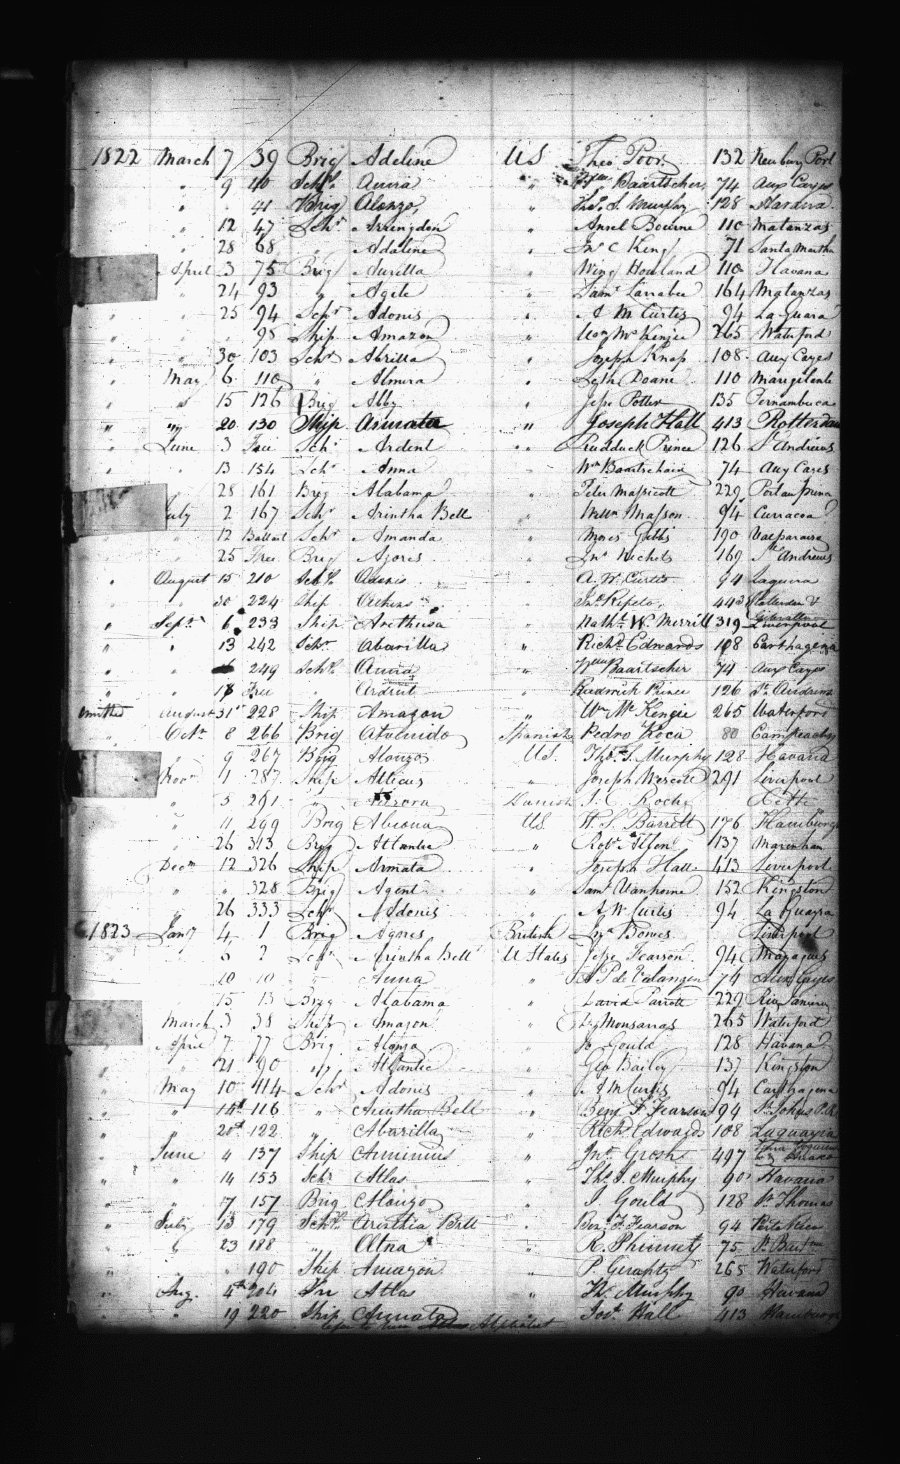 1822 March 7 39 Brig Adeline US Theo Poor 132 Newbury Port
" 9 40 Schr. Anna " Wm Baartscher 74 Aux Cayes
" " 41 Brig Alonzo " Thos. S. Murphy 128
" 12 47 Schr Arringdon " Ansel Bourne 110 Matanzas
" 28 68 " Adaline " Jno C King 71 Santa Martha
April 3 75 Brig Aurilla " Wing Howland 110 Havana
" 24 93 " Agile " Saml Larrabee 164 Matanzas
" 25 94 Schr Adonis " A M Curtis 94 La Guara
" " 98 Ship Amazon " Wm Mc Kenzie 265 Waterford
" 30 103 Schr Abrilla " Joseph Knap 108 Aux Cayes
" May 6 110 " Almira " Seth Doane 110
" " 15 126 Brig Abby " Jese Potter 135 Pernambuca
" " 20 130 Ship Armata " Joseph Hall 413 Rotterdam
" June 3 Free Schr Ardent " Rudduck Prince 126 St Andrews
" " 13 154 Schr Anna " Wm 74 Aux Cayes
" 28 161 Brig Alabama " Peter 229 Port au Prince
July 2 167 Schr Arintha Bell " Willm Masson 94 Curracoa
" 12 Ballast Schr Amanda " Moses Gibbs 190 Valparaiso
" 25 Free Brig Agores " Jno 169 St Andrews
" August 15 210 Schr. Adonis " A. W. Curtis 94 Laguera
" " 30 224 Ship " Jno. Ripeto 443 &
Gibralter
" Septr 6 233 Ship Arethusa " Nathl. W. Merrill 319 Liverpool
" " 13 242 Schr. Abarilla " Richd. Edwards 108 Carthagena
" " 249 Schr. Anna " Wm Baartscher 74 Aux Cayes
" " 17 Free " Ardent Prince 126 St. Andrews
omitted August 31st 228 Ship Amazon " Wm Mc Kenzie 265 Waterford
" Octr 8 266 Brig Atvenido Spanish Pedro Roca 80 Campeachy
" 9 267 Brig Alonzo US. Thos. S. Murphy 128 Havana
Novr 1 287 Ship Atticus " Joseph Wescott 291 Liverpool
" " 5 291 " Aurora Danish J. C. Roche Cette
" " 11 299 Brig Abeona US W. S. Barrett 176 Hamburg
" 26 313 Brig Atlantic " Robt 137
" Decr 12 326 Ship Armata " Joseph Hall 413 Liverpool
" " " 328 Brig Agent " Saml Vanhorne 152 Kingston
" 26 333 Schr Adonis " A. W. Curtis 94 La Guayra
1823 Jany 4 1 Brig Agores British Jno Bowes Liverpool
" 5 2 Schr Arintha Bell U States Jesse Pearson 94
10 10 " Anna " 74 Aux Cayes
" 15 13 Brig Alabama " David Parrott 229 Rio Janeiro
March 3 38 Ship Amazon " Monsarras 265 Waterford
" April 7 77 Brig Alonzo " J. Gould 128 Havana
" " 21 90 " Atlantic " Geo Bailey 137 Kingston
" May 10 114 Schr Adonis " A M Curtis 94 Carthagena
" " 14th 116 " Arintha Bell " Benj F Pearson 94 St Johns P.R
" " 20th 122 " Abarilla " Richd Edwards 108 Laguayra
" June 4 137 Ship Arminius " Jno. Grosh 497
" " 14 153 Schr Atlas " Thos S. Murphy 90 Havana
" " 17 157 Brig Alonzo " J Gould 128 St. Thomas
" July 13 179 Schr. Arintha Bell " Benj F Pearson 94
" " 23 188 " Altna " R. 75
" " 190 Ship Amazon " P. 265 Waterford
" Aug. 4th 204 Atlas " Th. Murphy 90 Havana
" " 19 220 Ship Armata " Josh. Hall 413 Hamburg
Alphabet